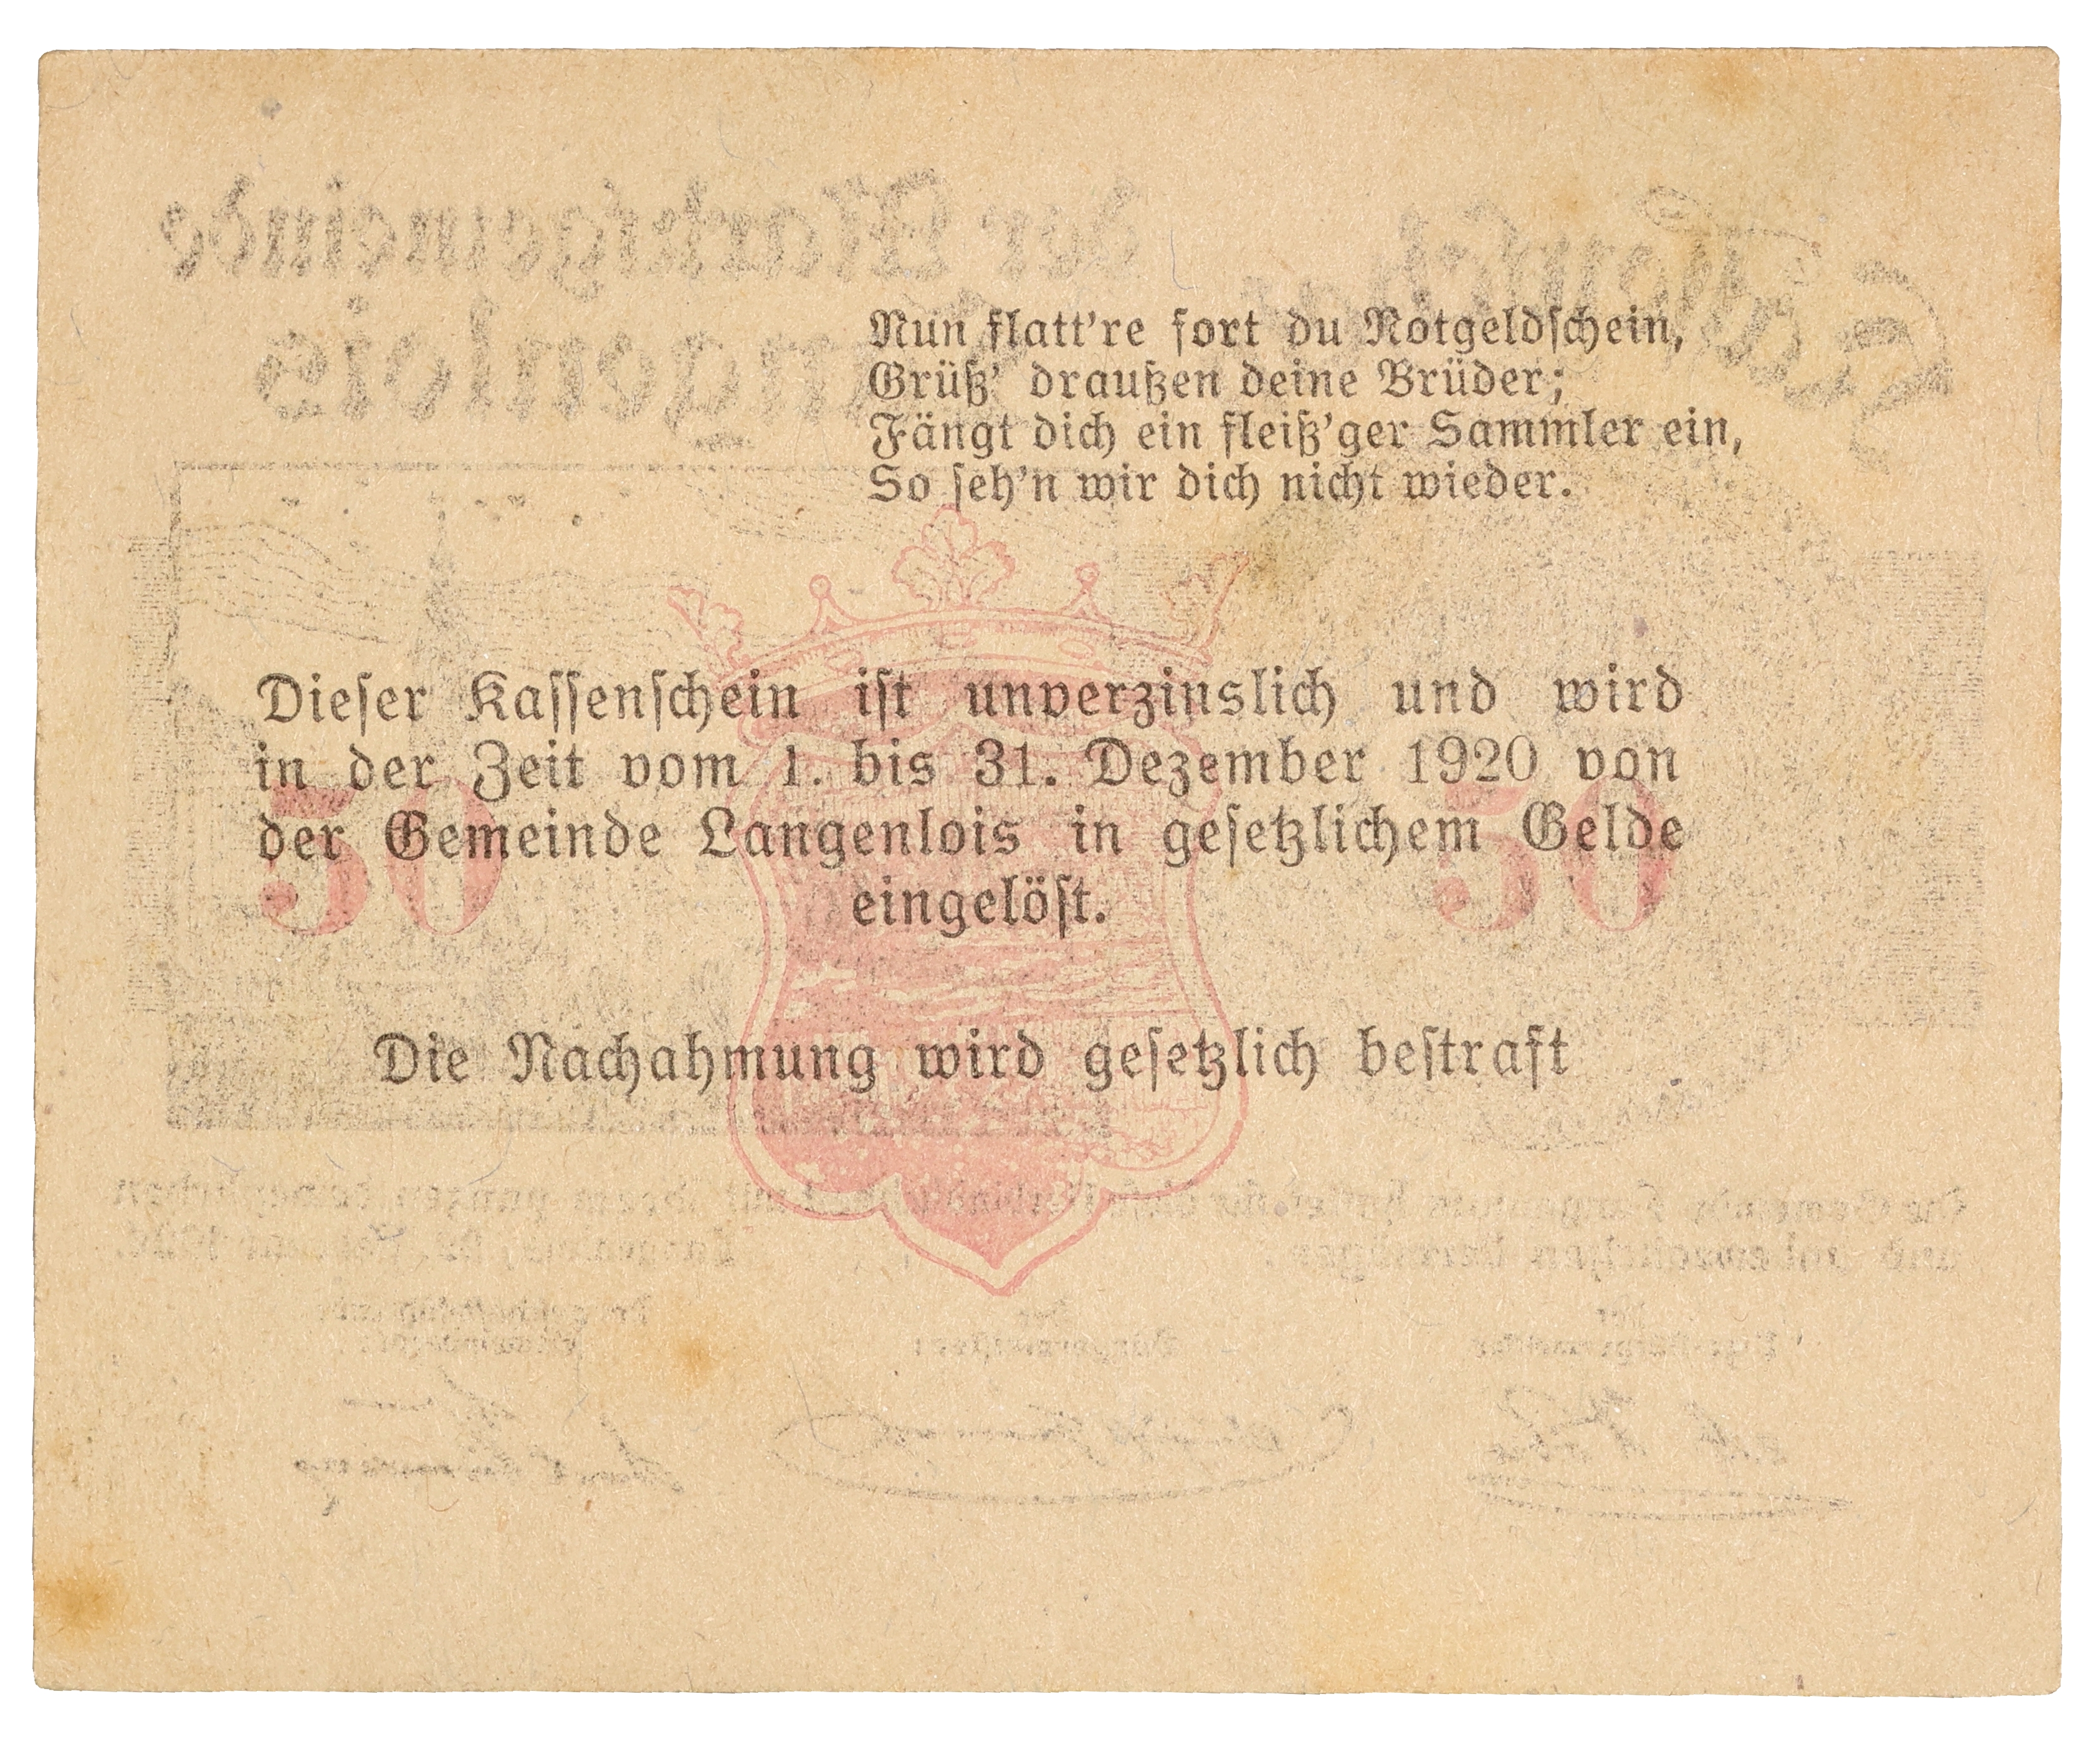 Nun flatt're fort du Notgeldschein,
Grüß' draußen deine Brüder;
Fängt dich ein fleiß'ger Sammler ein,
So seh'n wir dich nicht wieder.
Dieser Kassenschein ist unverzinslich und wird
in der Zeit vom 1. bis 31. Dezember 1920 von
der Gemeinde Langenlois in gesetzlichem Gelde
eingelöst.
50 50
Die Nachahmung wird gesetzlich bestraft